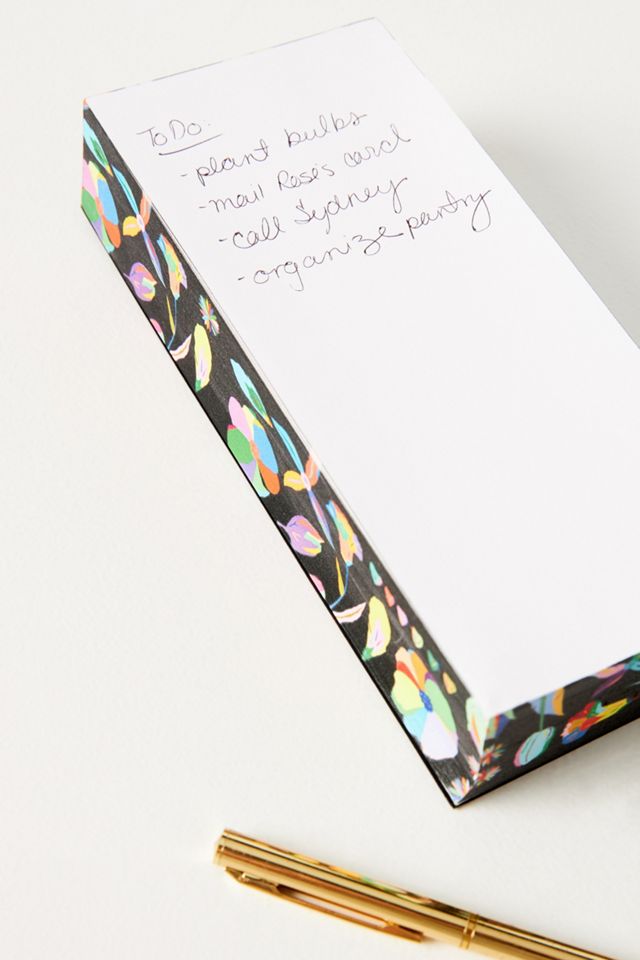 To Do:
- plant bulbs
- mail Rose's card
- call Sydney
- organize pantry